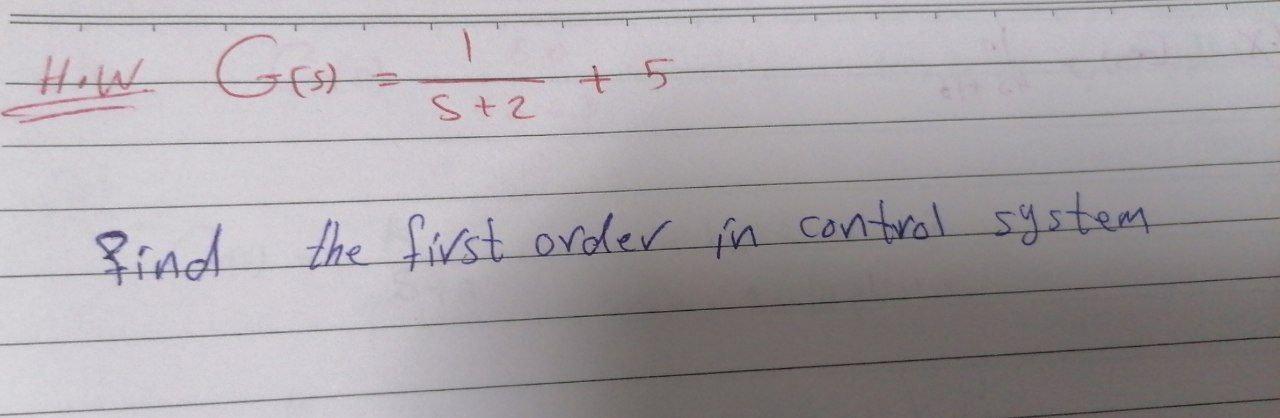 H.W. G(s) = 1/(s+2) + 5
find the first order in control system